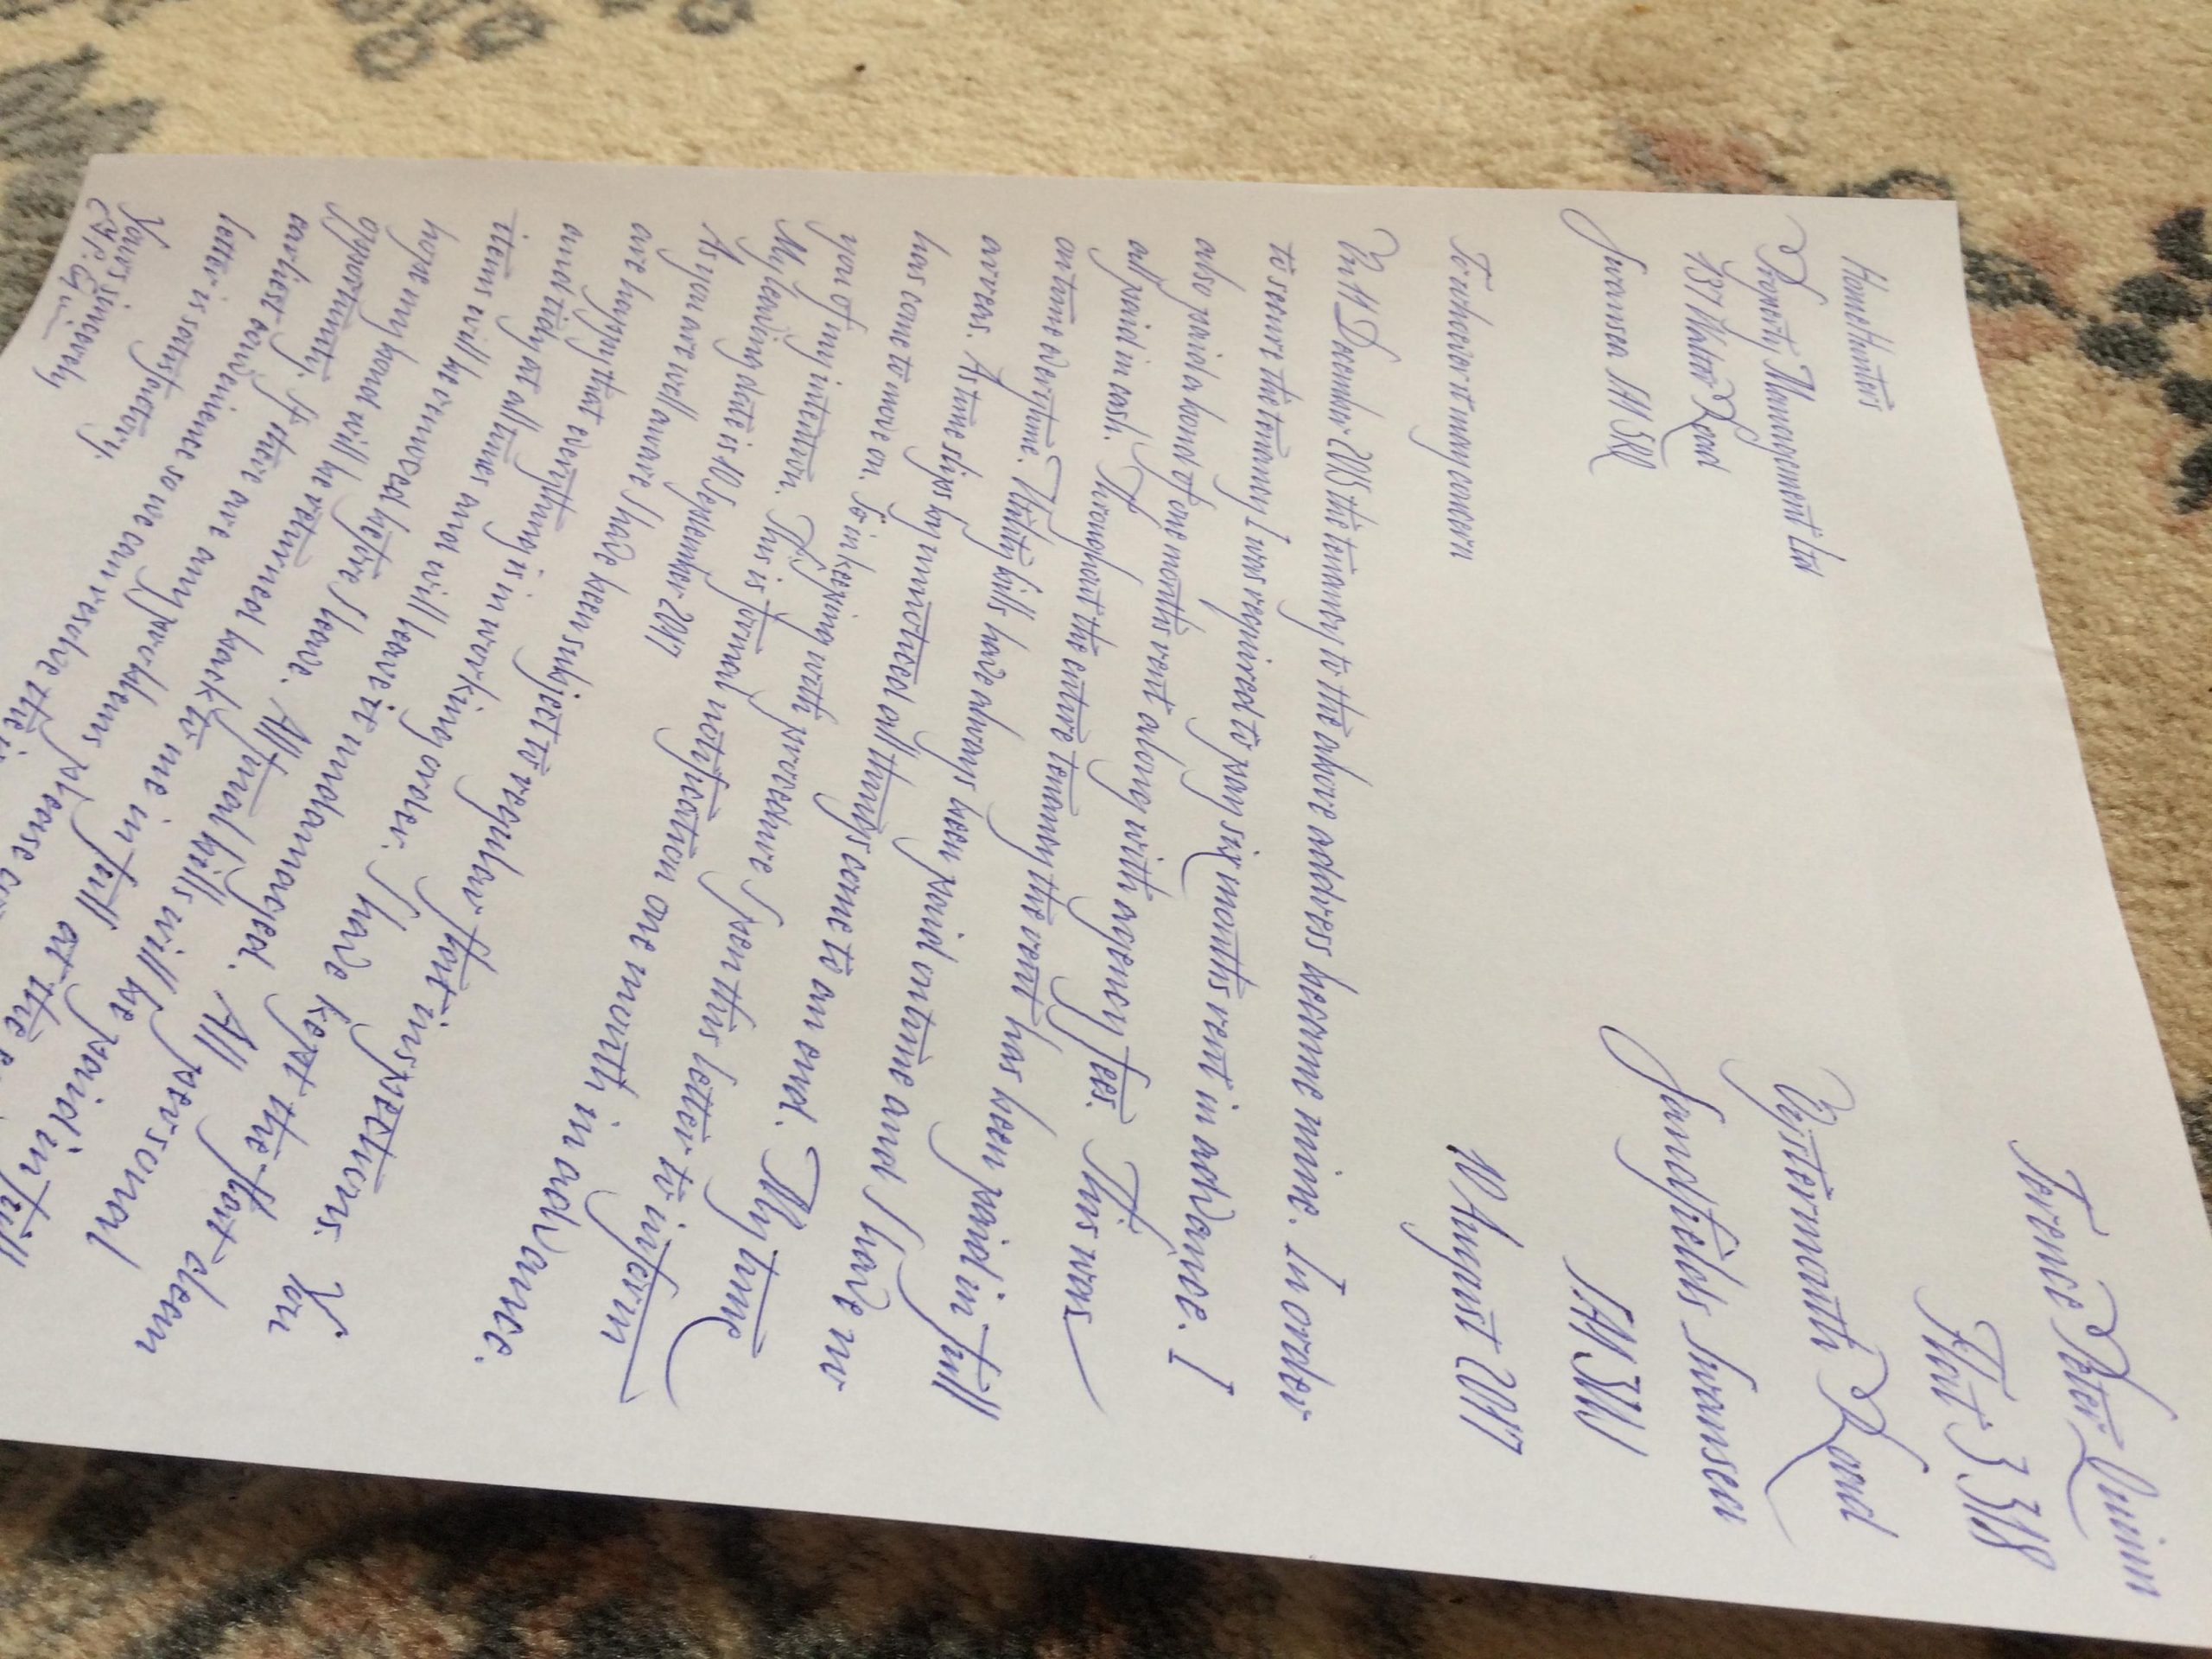 Terence Peter Quinn
Flat 3 318
Oystermouth Road
Sandfields Swansea
SA1 3UJ
HomeHunters
Property Management Ltd
137 Road
Swansea SA1
10 August 2017
To whom it may concern
On 11 December 2015 the tenancy to the above address become mine. In order
to secure the tenancy I was required to pay six months rent in advance. I
also paid a bond of one months rent along with agency fees. This was
all paid in cash. Throughout the entire tenancy the rent has been paid in full
on time everytime. Utility bills have always been paid ontime and I have no
arrears. As time slips by unnoticed all things come to an end. My time
has come to move on. So in keeping with procedure I pen this letter to inform
you of my intention. This is formal notification one month in advance.
My leaving date is 10 September 2017
As you are well aware I have been subject to regular flat inspections. You
are happy that everything is in working order. I have kept the flat clean
and tidy at all times and will leave it undamaged. All personal
items will be removed before I leave. All final bills will be paid in full
hope my bond will be returned back to me in full at the
opportunity. If there are any problems please
earliest convenience so we can resolve the
letter is satisfactory.
Yours sincerely